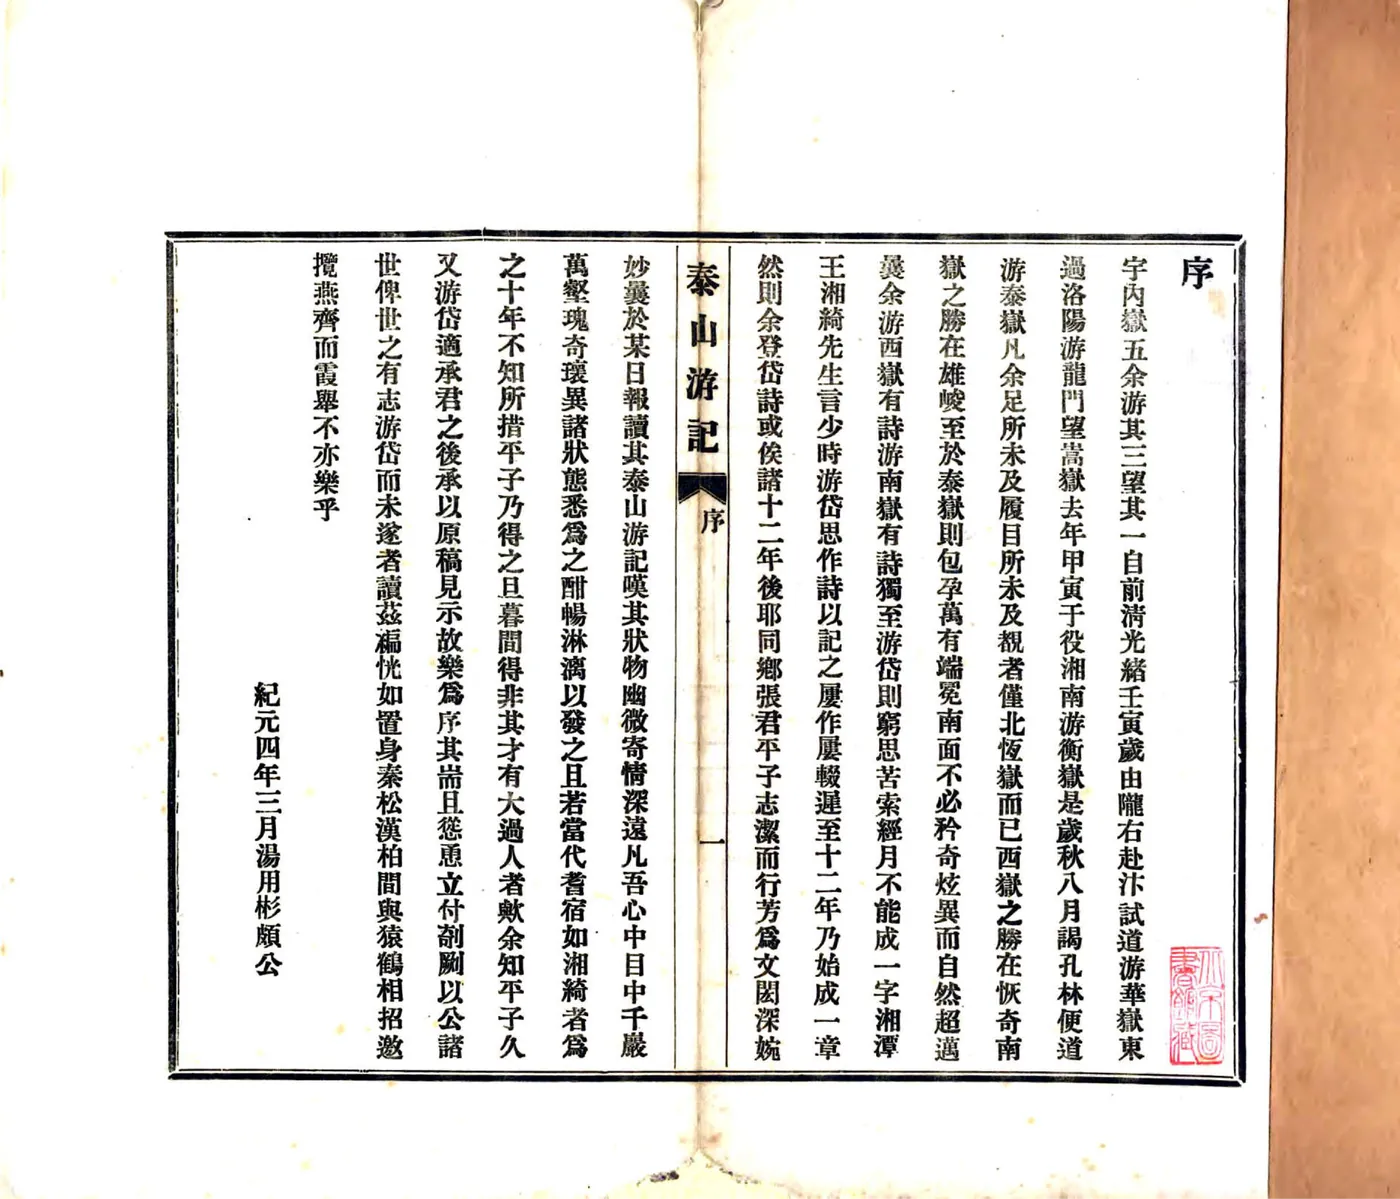 序
宇內嶽五余游其三望其一自前清光緒壬寅歲由隴右赴汴試道游華嶽東
過洛陽游龍門望嵩嶽去年甲寅于役湘南游衡嶽是歲秋八月謁孔林便道
游泰嶽凡余足所未及履目所未及覩者僅北恆嶽而已西嶽之勝在恢奇南
嶽之勝在雄峻至於泰嶽則包孕萬有端冕南面不必矜奇炫異而自然超邁
曩余游西嶽有詩游南嶽有詩獨至游岱則窮思苦索經月不能成一字湘潭
王湘綺先生言少時游岱思作詩以記之屢作屢輟遲至十二年乃始成一章
然則余登岱詩或俟諸十二年後耶同鄉張君平子志潔而行芳爲文閎深婉
泰山游記
序
一
妙曩於某日報讀其泰山游記嘆其狀物幽微寄情深遠凡吾心中目中千巖
萬壑瑰奇瓌異諸狀態悉爲之酣暢淋漓以發之且若當代耆宿如湘綺者爲
之十年不知所措平子乃得之旦暮間得非其才有大過人者歟余知平子久
又游岱適承君之後承以原稿見示故樂爲序其耑且慫恿立付剞劂以公諸
世俾世之有志游岱而未遂者讀茲褊恍如置身秦松漢柏間與猿鶴相招邀
攬燕齊而霞舉不亦樂乎
紀元四年三月湯用彬頗公
北京圖
書館藏